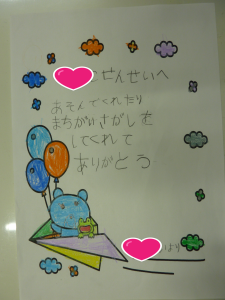 せんせいへ
あそんでくれたり
まちがいさがしを
してくれて
ありがとう
より